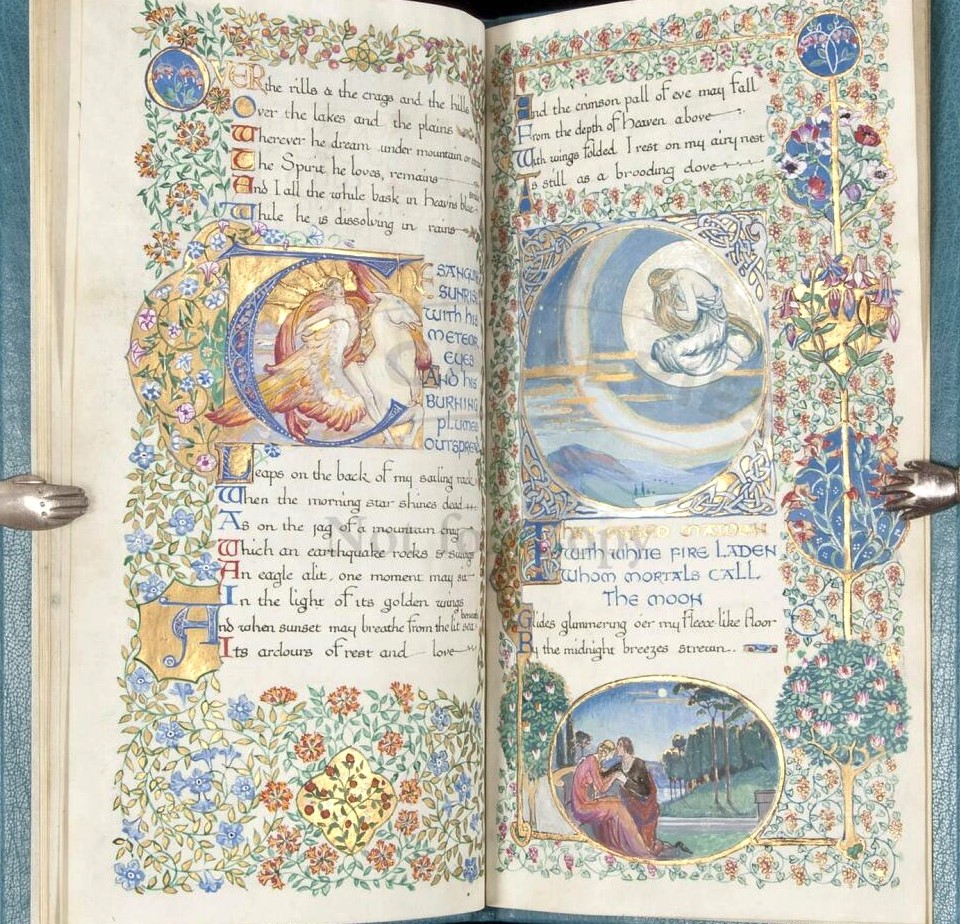 OVER the rills & the crags and the hills
Over the lakes and the plains
Wherever he dream under mountain or stream
The Spirit he loves, remains
And I all the while bask in heavens blue smile
While he is dissolving in rains
THE SANGUINE
SUNRISE
WITH his
METEOR
EYES
AND his
BURNING
plumes
OUTSPREAD
Leaps on the back of my sailing rack
When the morning star shines dead
As on the jag of a mountain crag
Which an earthquake rocks & swings
An eagle alit, one moment may sit
In the light of its golden wings
And when sunset may breathe from the lit sea beneath
Its ardours of rest and love
And the crimson pall of eve may fall
From the depth of heaven above
With wings folded I rest on my airy nest
As still as a brooding dove
THAT ORBED MAIDEN
WITH WHITE FIRE LADEN
WHOM MORTALS CALL
THE MOON
Glides glimmering oer my fleece-like floor
By the midnight breezes strewn..